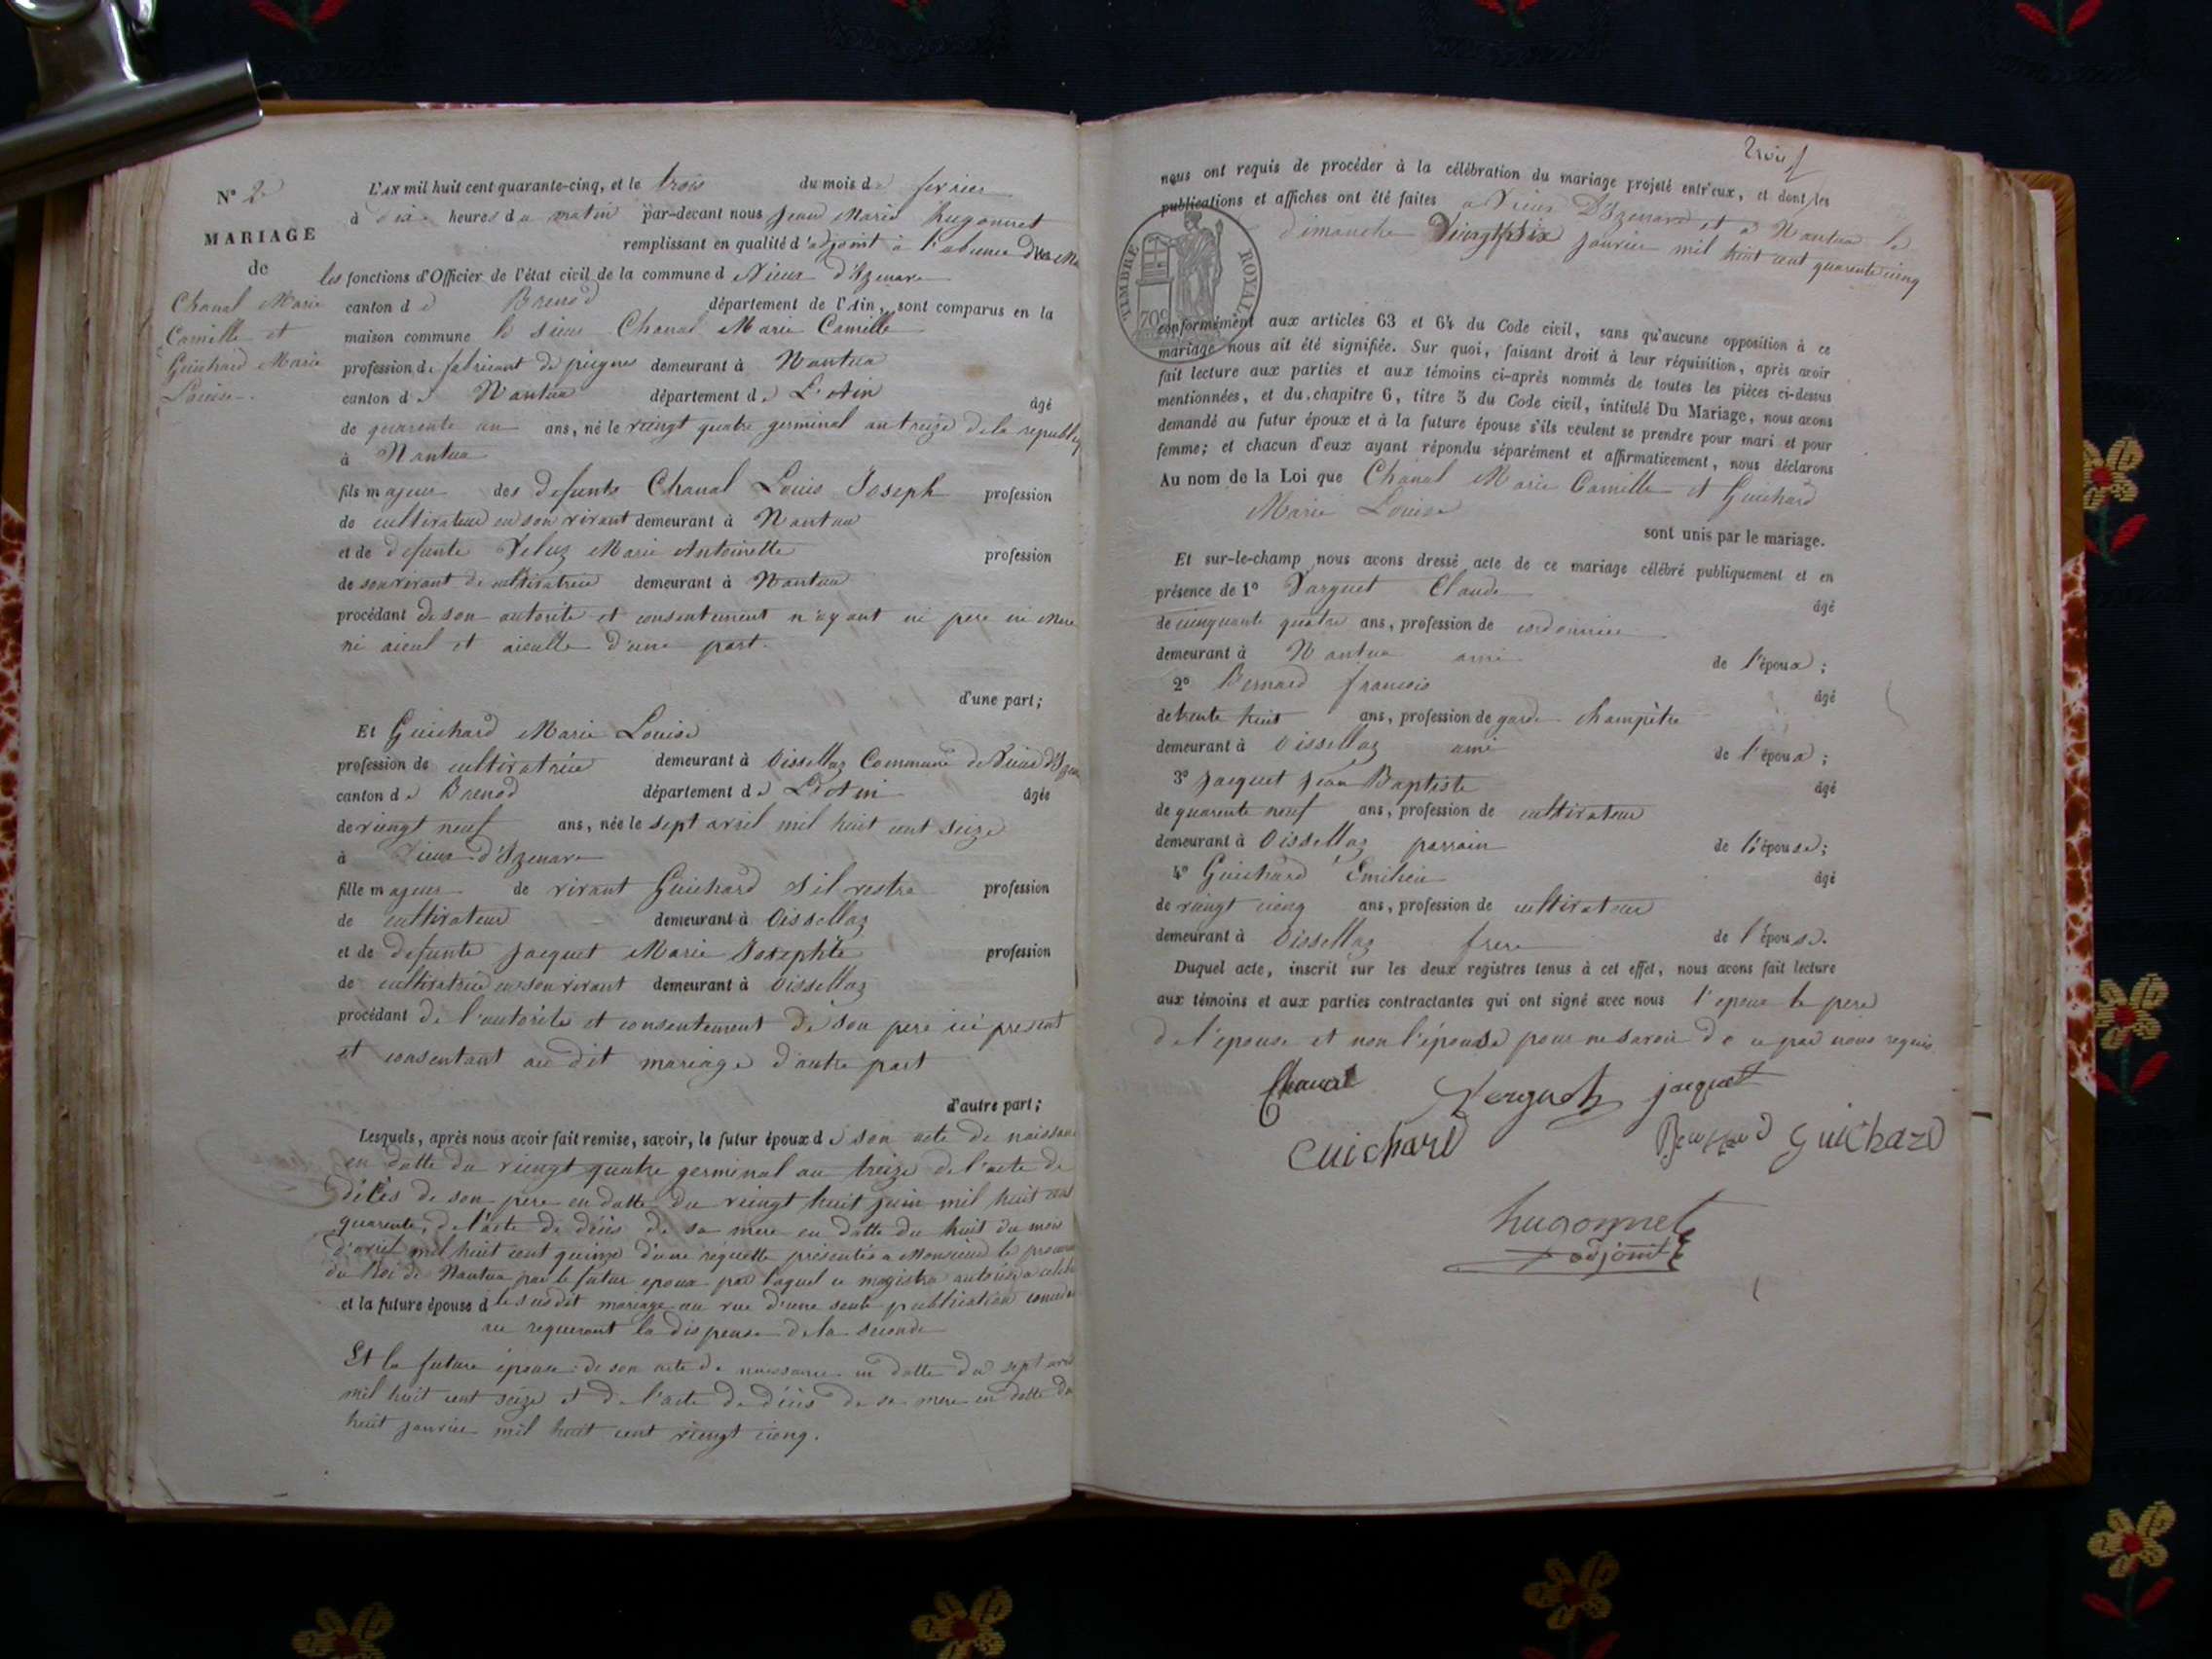 N° 2
MARIAGE
de
Chanal Marie
Camille et
Guichard Marie
Louise.
L'AN mil huit cent quarante-cinq, et le trois du mois de fevrier
à dix heures du matin par-devant nous Jean Marie hugonnet
remplissant en qualité d'adjoint à l'absence du
les fonctions d'Officier de l'état civil de la commune d Vieux d'Izenave
canton de Brenod département de l'Ain, sont comparus en la
maison commune le sieur Chanal Marie Camille
profession de fabricant de peignes demeurant à Nantua
canton de Nantua département de L'Ain âgé
de quarente un ans, né le vingt quatre germinal an treize de la republiq
à Nantua
fils majeur des defunts Chanal Louis Joseph profession
de cultivateur en son vivant demeurant à Nantua
et de defunte Veluz Marie Antoinette profession
de son vivant de cultivatrice demeurant à Nantua
procédant de son autorité et consentement n'ayant ni pere ni mere
ni aieul et aieulle d'une part.
d'une part;
Et Guichard Marie Louise
profession de cultivatrice demeurant à Oissellaz Commune de Vieux d'Izen
canton de Brenod département de L'Ain âgée
de vingt neuf ans, née le sept avril mil huit cent seize
à Vieux d'Izenave
fille majeur de vivant Guichard Silvestre profession
de cultivateur demeurant à Oissellaz
et de defunte Jacquet Marie Josephte profession
de cultivatrice en son vivant demeurant à Oissellaz
procédant de l'autorité et consentement de son pere ici present
et consentant au dit mariage d'autre part
d'autre part;
Lesquels, après nous avoir fait remise, savoir, le futur époux de son acte de naissan
en datte du vingt quatre germinal an treize de l'acte de
décès de son pere en datte du vingt huit juin mil huit cent
quarente, de l'acte de décès de sa mere en datte du huit du mois
d'avril mil huit cent quinze d'une requette présentée a Monsieur le procure
du Roi de Nantua par le futur epoux par laquel ce magistra autorise a celeb
et la future épouse d le susdit mariage au vue d'une seule publication
au requerant la dispense de la seconde
Et la future épouse de son acte de naissance en datte du sept avri
mil huit cent seize et de l'acte de décès de sa mere en datte du
huit janvier mil huit cent vingt cinq.
trois
nous ont requis de procéder à la célébration du mariage projeté entr'eux, et dont les
publications et affiches ont été faites a Vieux D'Izenave et a Nantua le
dimanche Vingt six janvier mil huit cent quarente cinq
TIMBRE ROYAL
70C
conformément aux articles 63 et 64 du Code civil, sans qu'aucune opposition à ce
mariage nous ait été signifiée. Sur quoi, faisant droit à leur réquisition, après avoir
fait lecture aux parties et aux témoins ci-après nommés de toutes les pièces ci-dessus
mentionnées, et du chapitre 6, titre 5 du Code civil, intitulé Du Mariage, nous avons
demandé au futur époux et à la future épouse s'ils veulent se prendre pour mari et pour
femme; et chacun d'eux ayant répondu séparément et affirmativement, nous déclarons
Au nom de la Loi que Chanal Marie Camille et Guichard
Marie Louise
sont unis par le mariage.
Et sur-le-champ nous avons dressé acte de ce mariage célébré publiquement et en
présence de 1° Varguet Claude âgé
de cinquante quatre ans, profession de cordonnier
demeurant à Nantua ami de l'époux;
2° Bernard francois âgé
de trente huit ans, profession de garde champêtre
demeurant à Oissellaz ami de l'époux;
3° Jacquet Jean Baptiste âgé
de quarente neuf ans, profession de cultivateur
demeurant à Oissellaz parrain de l'épouse;
4° Guichard Emilien âgé
de vingt cinq ans, profession de cultivateur
demeurant à Oissellaz frere de l'épouse.
Duquel acte, inscrit sur les deux registres tenus à cet effet, nous avons fait lecture
aux témoins et aux parties contractantes qui ont signé avec nous l'epoux le pere
de l'épouse et non l'épouse pour ne savoir de ce par nous requis
Chanal Verguet jacquet
Guichard Bernard Guichard
hugonnet
adjoint